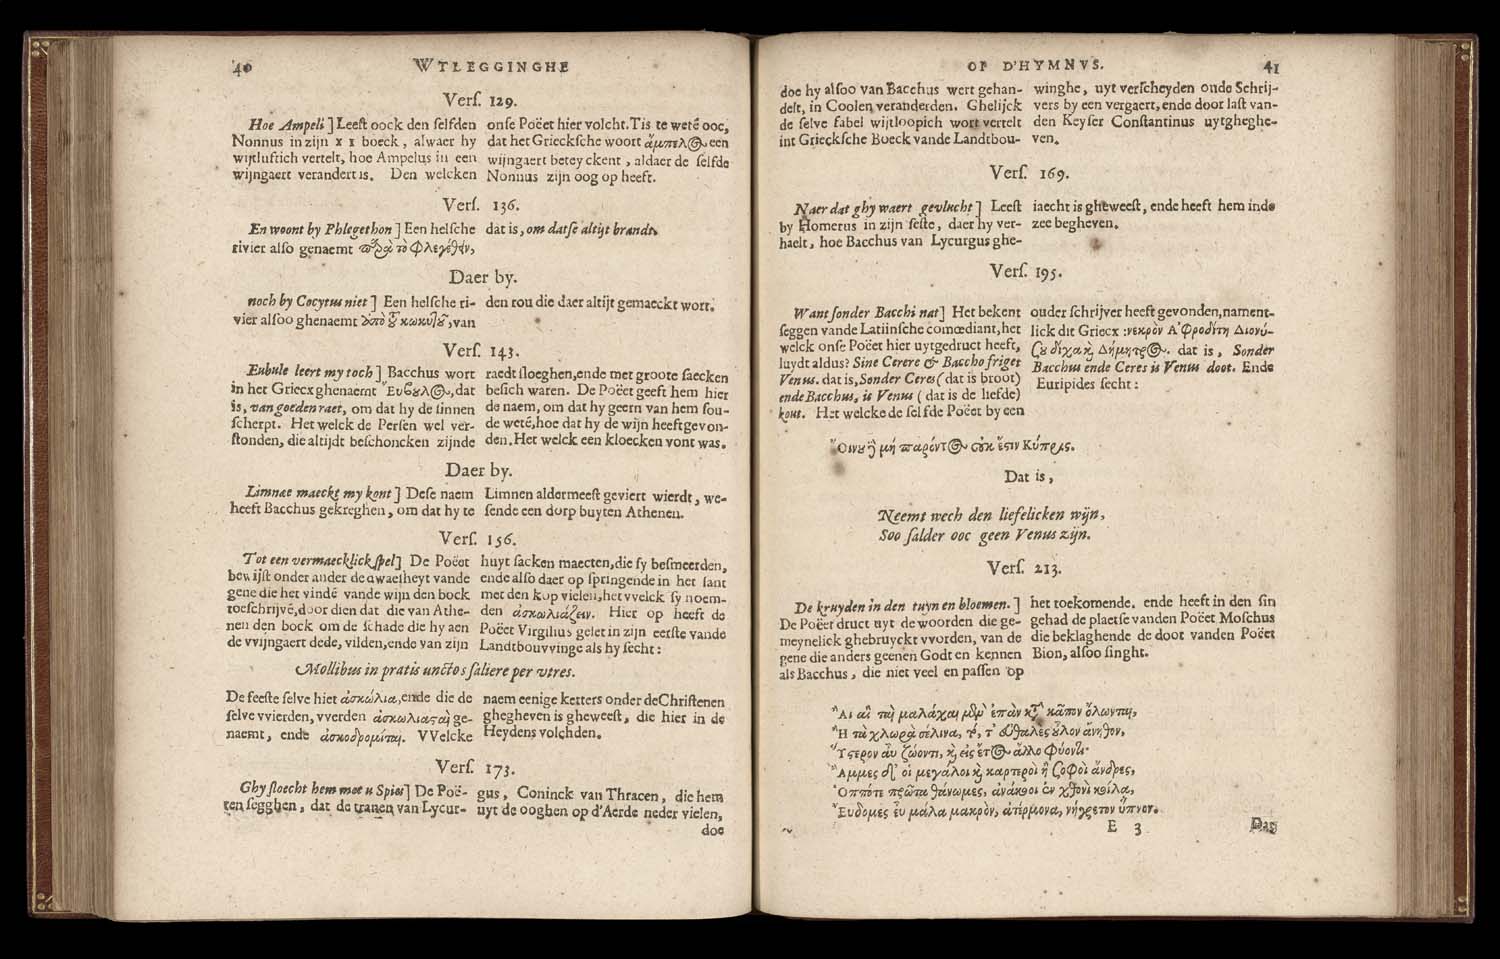 40 WTLEGGINGHE
Verſ. 129.
Hoe Ampeli ] Leeſt oock den ſelfden
Nonnus in zijn x i boeck, alwaer hy
wijtluftich vertelt, hoe Ampelus in een
wijngaert verandert is. Den welcken
onſe Poëet hier volcht. Tis te wetē ooc,
dat het Griecksche woort ἄμπελος een
wijngaert beteyckent, aldaer de ſelfde
Nonnus zijn oog op heeft.
Verſ. 136.
En woont by Phlegethon ] Een helſche
rivier alſo genaemt παρὰ τὸ Φλεγέθειν,
dat is, om datſe altijt brandt.
Daer by.
noch by Cocytus niet ] Een helſche ri-
vier alſoo ghenaemt ὑπὸ τοῦ κωκυτοῦ, van
den rou die daer altijt gemaeckt wort.
Verſ. 143.
Eubule leert my toch ] Bacchus wort
in het Griecx ghenaemt Ἔυβουλος, dat
is, van goeden raet, om dat hy de ſinnen
ſcherpt. Het welck de Perſen wel ver-
ſtonden, die altijdt beſchoncken zijnde
raedt ſloeghen, ende met groote ſaecken
beſich waren. De Poëet geeft hem hier
de naem, om dat hy geern van hem ſou-
de wetē, hoe dat hy de wijn heeft gevon-
den. Het welck een kloecken vont was.
Daer by.
Limnae maeckt my kont ] Deſe naem
heeft Bacchus gekreghen, om dat hy te
Limnen aldermeeſt geviert wierdt, we-
ſende een dorp buyten Athenen.
Verſ. 156.
Tot een vermaecklick ſpel] De Poëet
bewijſt onder ander de dwaeſheyt vande
gene die het vindē vande wijn den bock
toeſchrijvē, door dien dat die van Athe-
nen den bock om de ſchade die hy aen
de vvijngaert dede, vilden, ende van zijn
huyt ſacken maecten, die ſy beſmeerden,
ende alſo daer op ſpringende in het ſant
met den kop vielen, het vvelck ſy noem-
den ἀσκωλιάζειν. Hier op heeft de
Poëet Virgilius gelet in zijn eerſte vande
Landtbouvvinge als hy ſecht:
Mollibus in pratis unctos ſaliere per vtres.
De feeſte ſelve hiet ἀσκώλια, ende die de
ſelve vvierden, vverden ἀσκωλιασταὶ ge-
naemt, ende ἀσκοδρομίται. VVelcke
naem eenige ketters onder de Chriſtenen
ghegheven is gheweeſt, die hier in de
Heydens volchden.
Verſ. 173.
Ghy ſloecht hem met u Spies] De Poë-
ten ſegghen, dat de tranen van Lycur-
gus, Coninck van Thracen, die hem
uyt de ooghen op d'Aerde neder vielen,
doe
OP D'HYMNVS. 41
doe hy alſoo van Bacchus wert gehan-
delt, in Coolen veranderden. Ghelijck
de ſelve fabel wijtloopich wort vertelt
int Griecksche Boeck vande Landtbou-
winghe, uyt verſcheyden oude Schrij-
vers by een vergaert, ende door laſt van-
den Keyſer Conſtantinus uytgheghe-
ven.
Verſ. 169.
Naer dat ghy waert gevlucht ] Leeſt
by Homerus in zijn ſeſte, daer hy ver-
haelt, hoe Bacchus van Lycurgus ghe-
iaecht is gheweeſt, ende heeft hem inde
zee begheven.
Verſ. 195.
Want ſonder Bacchi nat ] Het bekent
ſeggen vande Latiinſche comœdiant, het
welck onſe Poëet hier uytgedruct heeft,
luydt aldus? Sine Cerere & Baccho friget
Venus. dat is, Sonder Ceres ( dat is broot)
ende Bacchus, is Venus ( dat is de liefde)
kout. Het welcke de ſelfde Poëet by een
ouder ſchrijver heeft gevonden, nament-
lick dit Griecx : νεκρὸν Ἀφροδίτη Διονύ-
ζου δίχα καὶ Δήμητρος. dat is, Sonder
Bacchus ende Ceres is Venus doot. Ende
Euripides ſecht :
Ὄινου δὲ μὴ παρόντος οὐκ ἔστιν Κύπρις.
Dat is,
Neemt wech den liefelicken wijn,
Soo ſalder ooc geen Venus zijn.
Verſ. 213.
De kruyden in den tuyn en bloemen. ]
De Poëet druct uyt de woorden die ge-
meynelick ghebruyckt vvorden, van de
gene die anders geenen Godt en kennen
als Bacchus, die niet veel en paſſen op
het toekomende. ende heeft in den ſin
gehad de plaetſe vanden Poëet Moſchus
die beklaghende de doot vanden Poëet
Bion, alſoo ſinght.
Ἂι αἲ ταὶ μαλάχαι μὲν ἐπὰν κατὰ κᾶπον ὄλωνται,
Ἢ τὰ χλωρὰ σέλινα, τό, τ' εὐθαλὲς οὖλον ἄνηθον,
Ὕστερον αὖ ζώοντι, καὶ εἰς ἔτος ἄλλο φύοντι·
Ἄμμες δ' οἱ μεγάλοι καὶ καρτεροὶ ἢ ζοφοὶ ἄνδρες,
Ὁππότε πρῶτα θάνωμες, ἀνάκοοι ἐν χθονὶ κοίλα,
Ἕυδομες εὖ μάλα μακρὸν, ἀτέρμονα, νήγρετον ὕπνον.
E 3
Dat